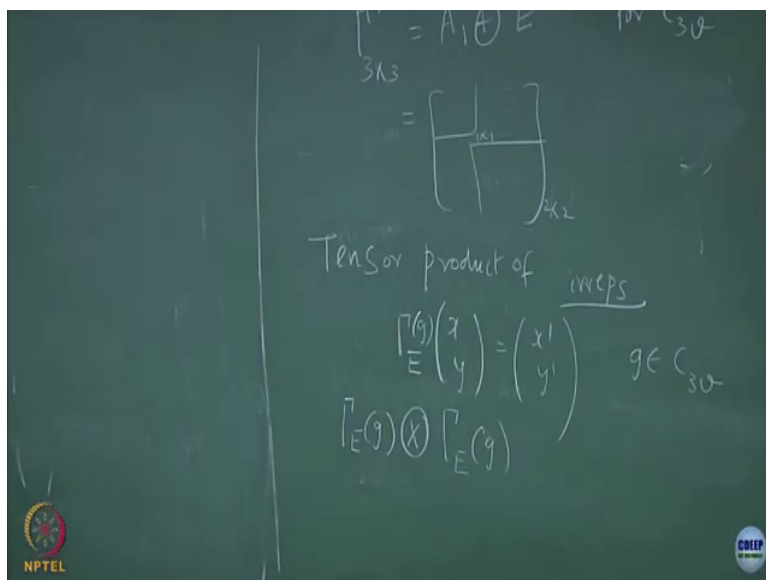 Γ = A₁ ⊕ E for C₃ᵥ
3x3
=
1x1
2x2
Tensor product of irreps
Γ_E(g) (x y) = (x' y') g ∈ C₃ᵥ
Γ_E(g) ⊗ Γ_E(g)
NPTEL
CDEEP